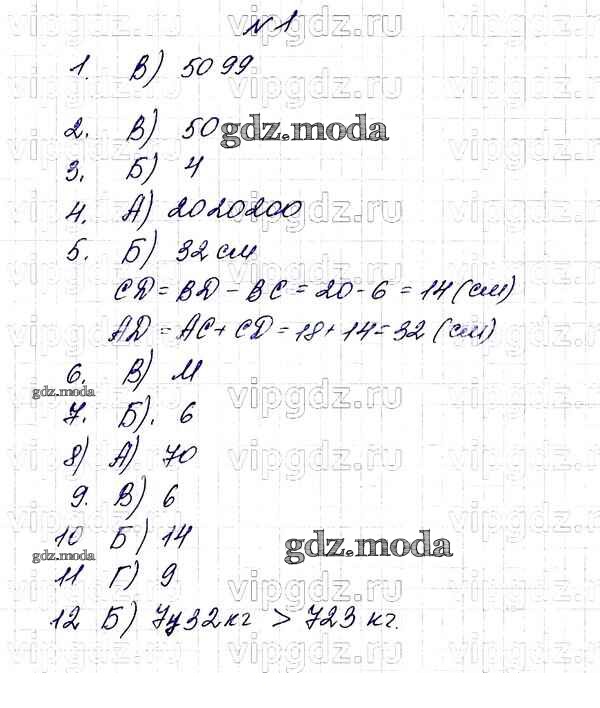 № 1
1. В) 5099
2. В) 50
gdz.moda
3. Б) 4
4. А) 2020200
5. Б) 32 см
CD = BD - BC = 20 - 6 = 14 (см)
AD = AC + CD = 18 + 14 = 32 (см)
6. В) М
gdz.moda
7. Б). 6
8) А) 70
9. В) 6
10 Б) 14
gdz.moda
gdz.moda
11 Г) 9
12 Б) 7ц32кг > 723 кг.
vipgdz.ru